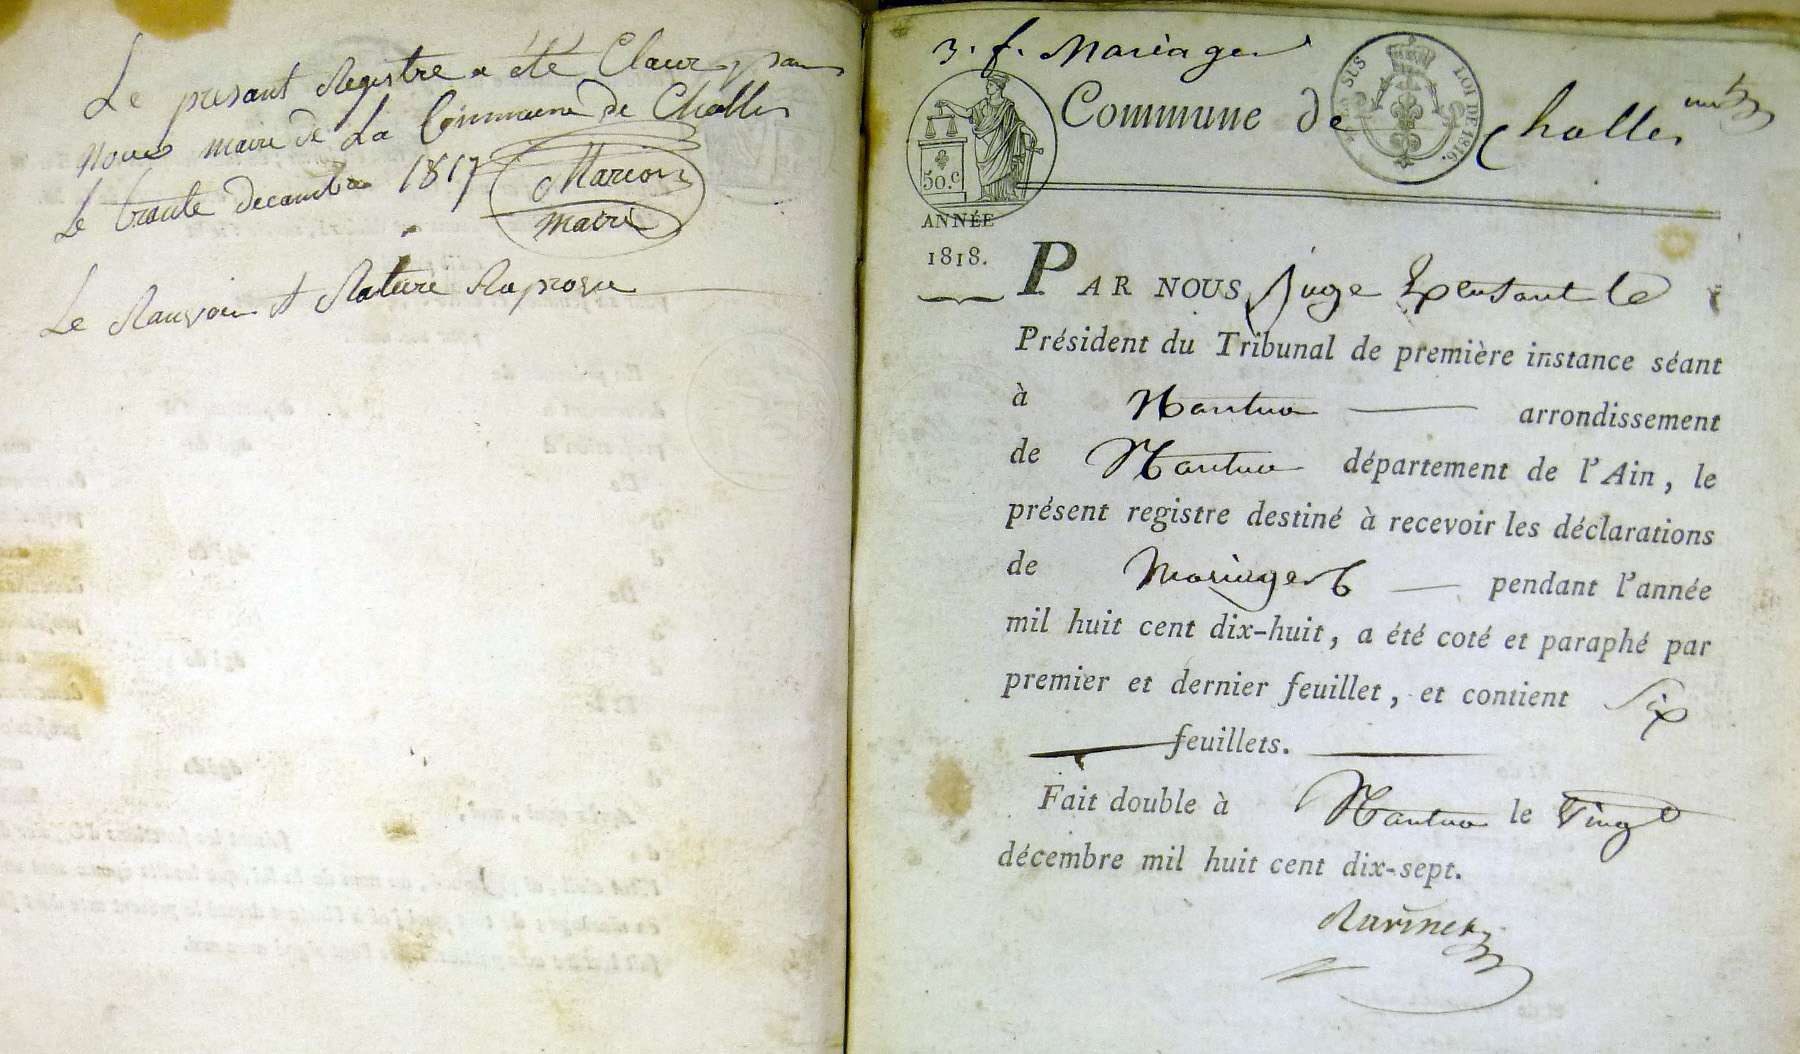 Le presant Registre a été Claux, par
nous maire de La Commune de Challes
Le trante decambre 1817
Marion
maire
Le Ranvoin et Rature Raprove
3. f. Mariages
Commune de Challes
un
SUS
LOI DE 1816.
50.c
ANNÉE
1818.
PAR NOUS, Juge Exersant le
Président du Tribunal de première instance séant
à Nantua arrondissement
de Nantua département de l'Ain, le
présent registre destiné à recevoir les déclarations
de Mariages pendant l'année
mil huit cent dix-huit, a été coté et paraphé par
premier et dernier feuillet, et contient Six
feuillets.
Fait double à Nantua le Vingt
décembre mil huit cent dix-sept.
Ravinet